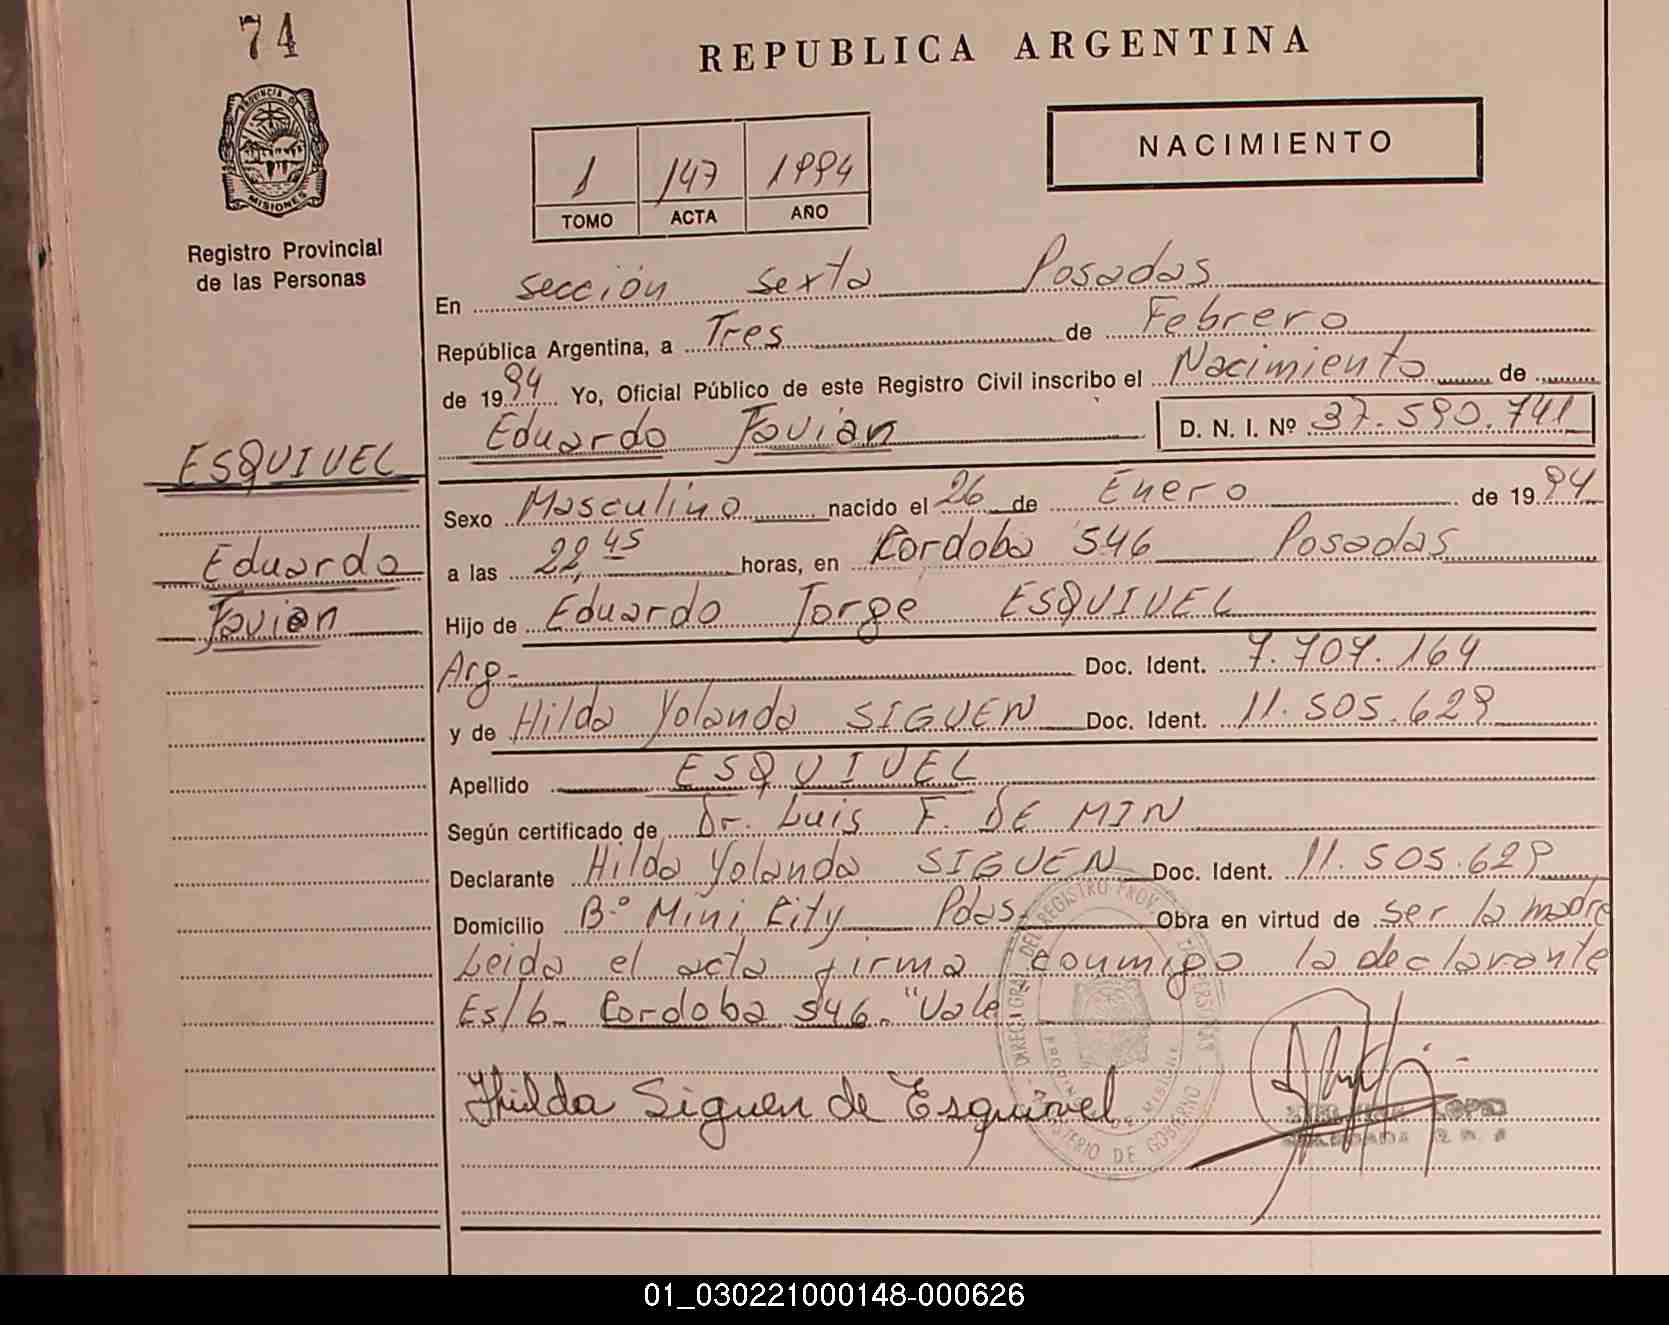 74
REPUBLICA ARGENTINA
PROVINCIA DE
MISIONES
NACIMIENTO
1 147 1994
TOMO ACTA AÑO
Registro Provincial
de las Personas
En Sección Sexta Posadas
República Argentina, a Tres de Febrero
de 1994 Yo, Oficial Público de este Registro Civil inscribo el Nacimiento de
Eduardo Favian D. N. I. Nº 37.590.741
ESQUIVEL
Sexo Masculino nacido el 26 de Enero de 1994
Eduardo
a las 22,45 horas, en Cordoba 546 Posadas
Favian
Hijo de Eduardo Jorge ESQUIVEL
Arg- Doc. Ident. 7.707.164
y de Hilda Yolanda SIGUEN Doc. Ident. 11.505.629
Apellido ESQUIVEL
Según certificado de Dr. Luis F. DE MIN
Declarante Hilda Yolanda SIGUEN Doc. Ident. 11.505.629
Domicilio Bº Mini City Pdas. Obra en virtud de ser la madre
Leida el acta firma conmigo la declarante
Es/b- Cordoba 546. "Vale
Hilda Siguen de Esquivel
01_030221000148-000626